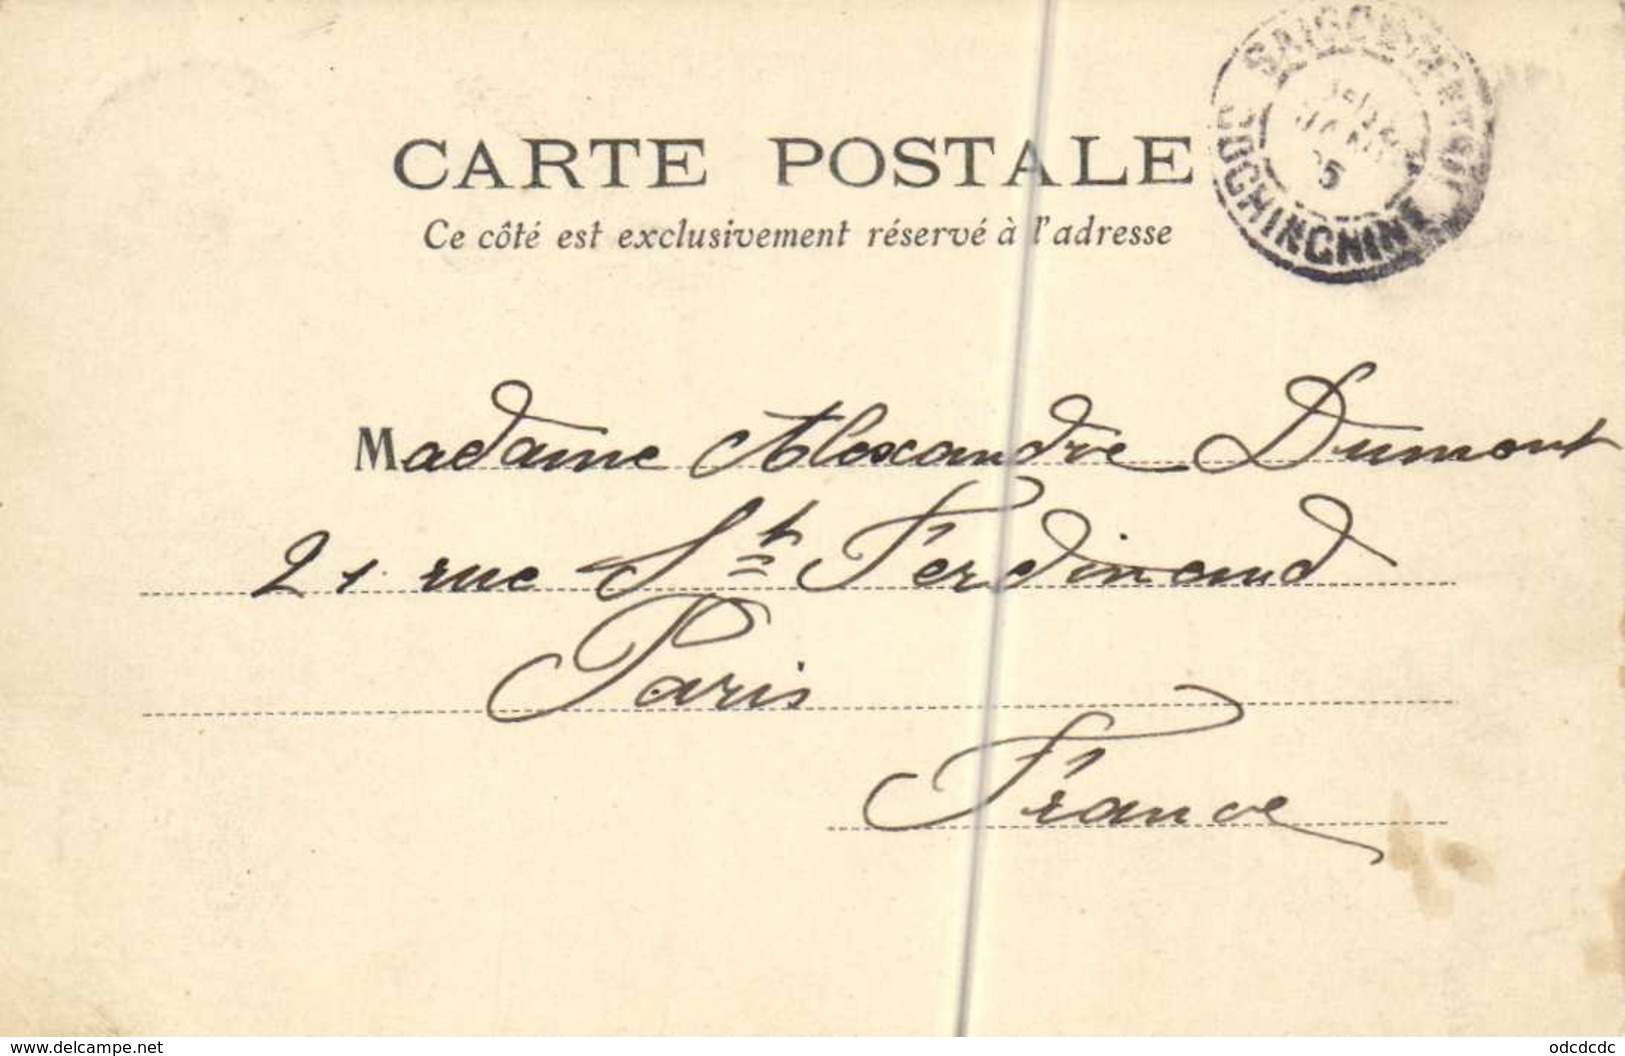 CARTE POSTALE
Ce côté est exclusivement réservé à l'adresse
SAIGON-CENTRAL
COCHINCHINE
5
Madame Alexandre Dumont
21 rue St Ferdinand
Paris
France
www.delcampe.net
odcdcdc